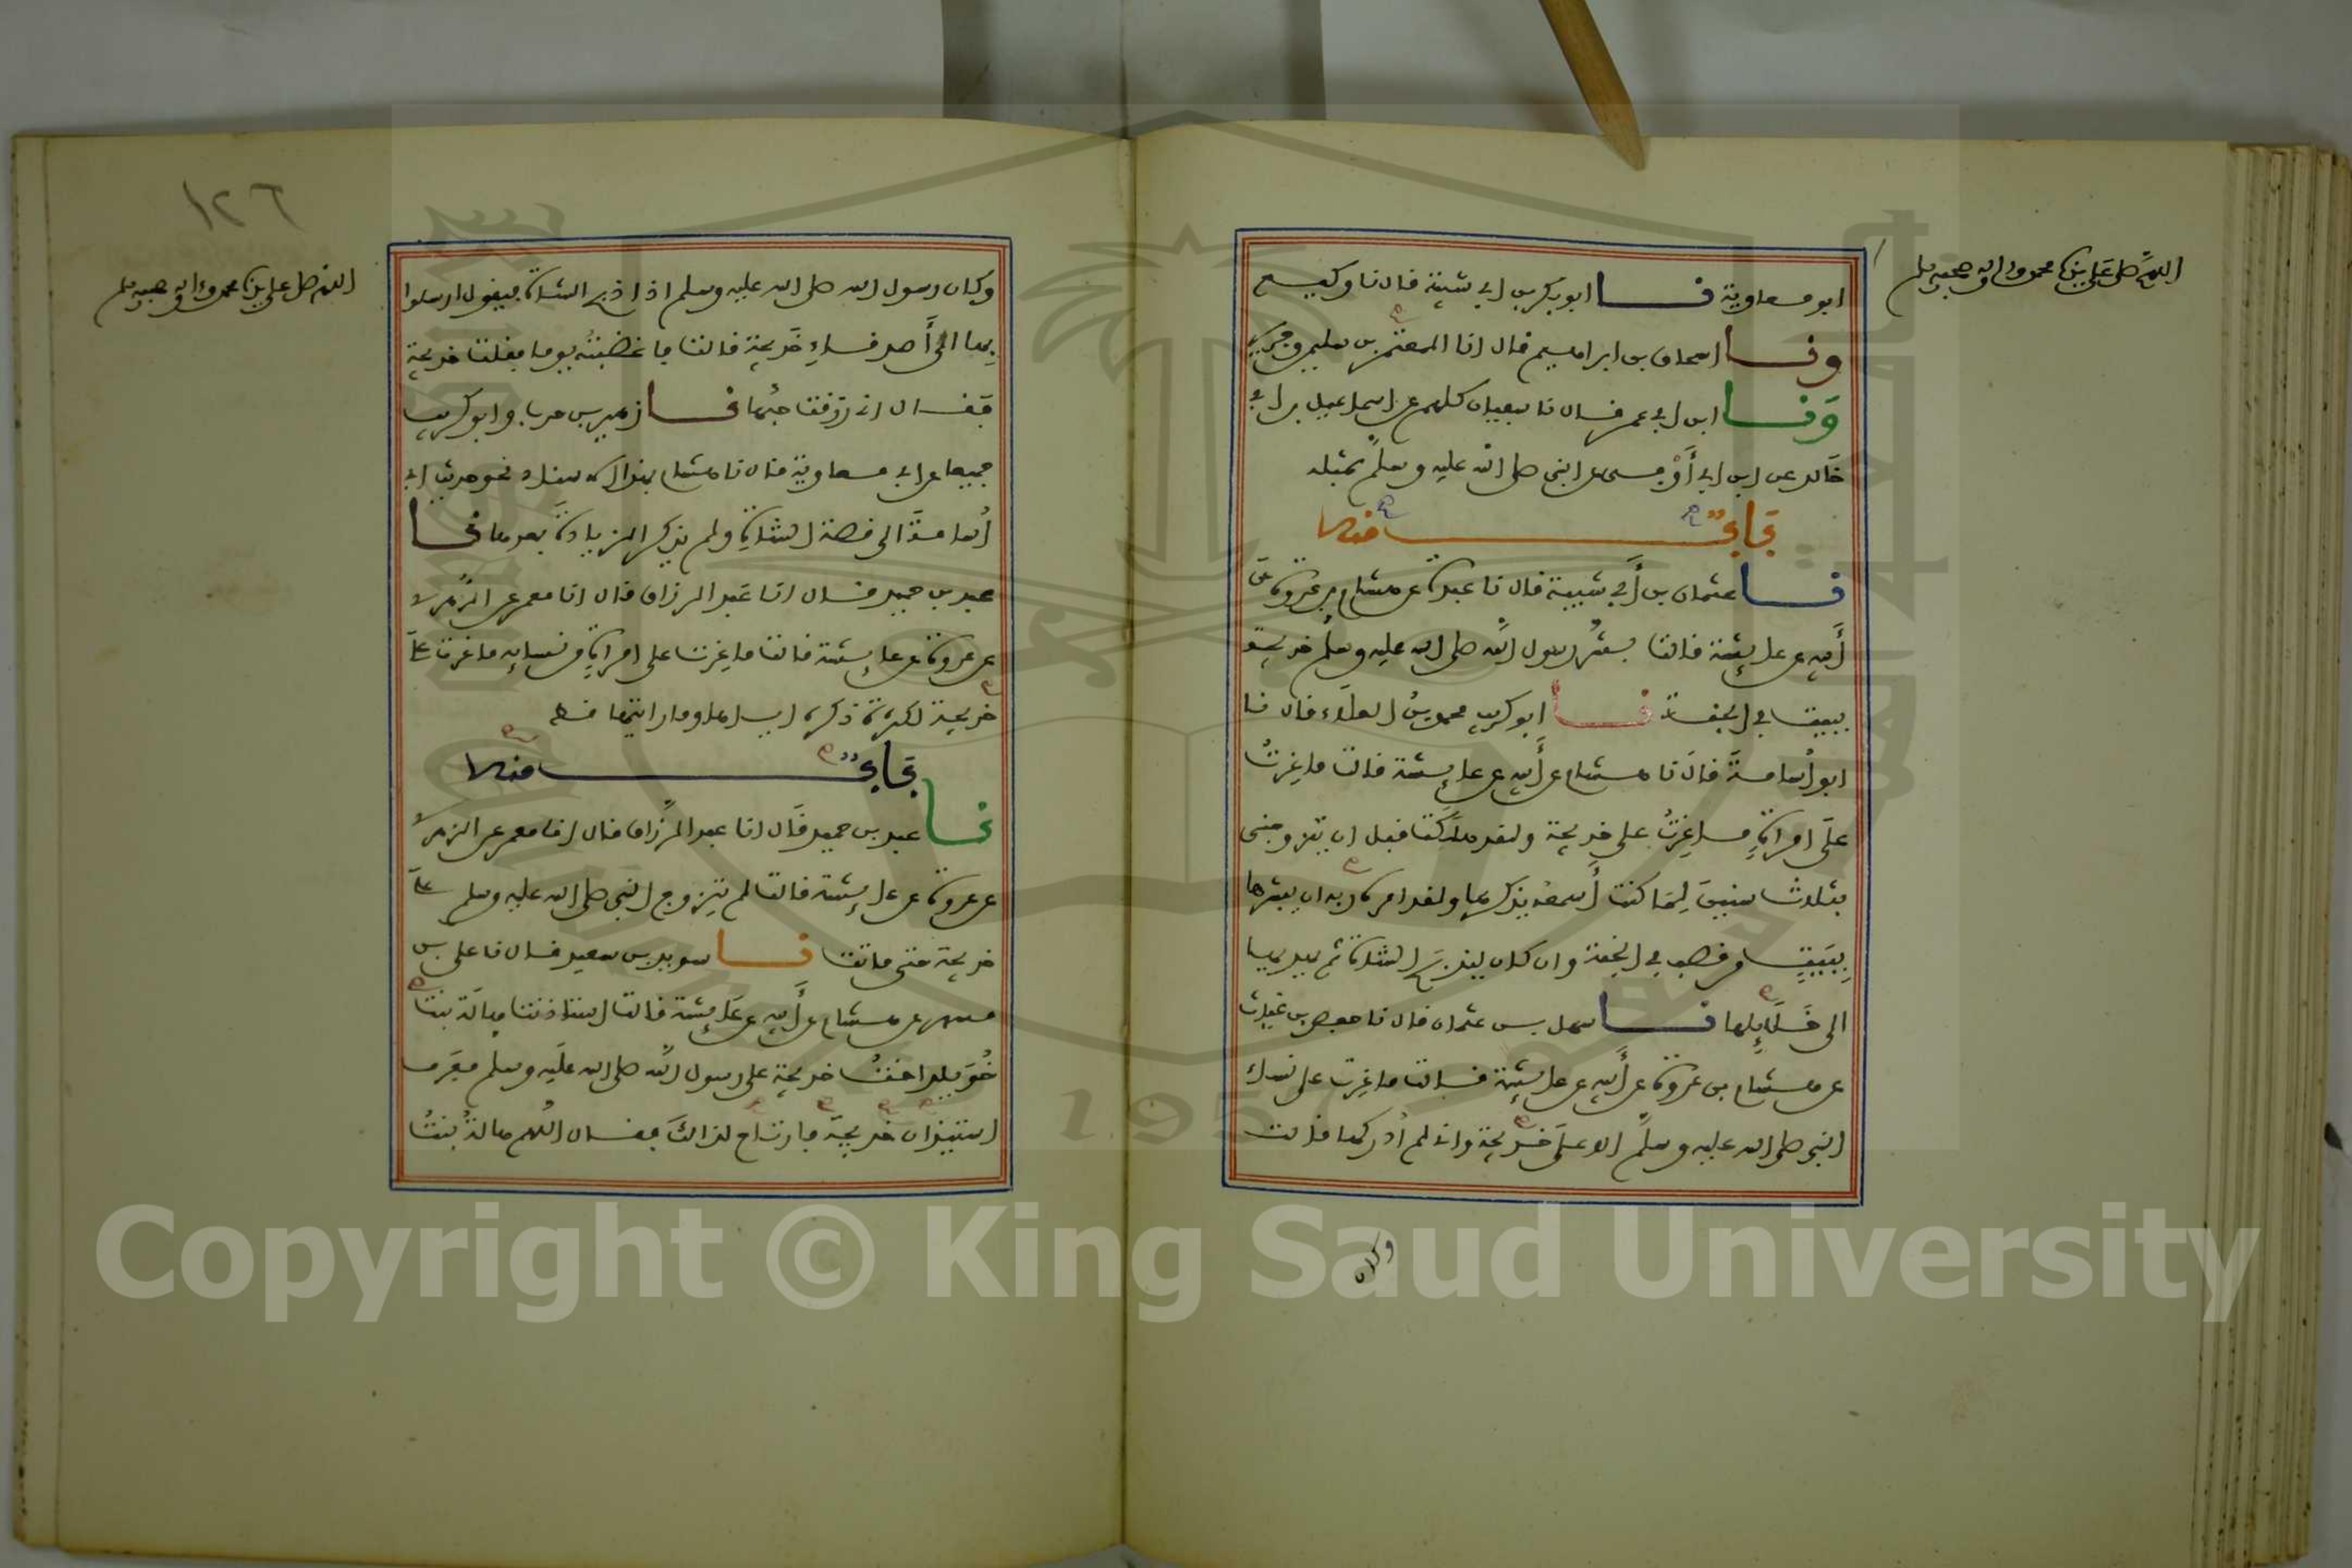 اللهم صل على سيدنا محمد واله وصحبه وسلم
ابو معاوية نا ابو بكر بن ابي شيبة قال نا وكيع
ونا اسحاق بن ابراهيم قال انا المعتمر بن سليمن وجرير
ونا ابن ابي عمر قال نا سفيان كلهم عن اسماعيل بن ابي
خالد عن ابن ابي أوفى عن النبي صلى الله عليه وسلم بمثله
باب منه
نا عثمان بن أبي شيبة قال نا عبدة عن هشام بن عروة عن
أبيه عن عائشة قالت بشر رسول الله صلى الله عليه وسلم خديجة
ببيت في الجنة نا ابو كريب محمد بن العلاء قال نا
ابو أسامة قال نا هشام عن أبيه عن عائشة قالت ما غرت
على امراة ما غرت على خديجة ولقد هلكت قبل ان يتزوجني
بثلاث سنين لما كنت أسمعه يذكرها ولقد امره ربه ان يبشرها
ببيت من قصب في الجنة وان كان ليذبح الشاة ثم يهديها
الى خلائلها نا سهل بن عثمان قال نا حفص بن غياث
عن هشام بن عروة عن أبيه عن عائشة قالت ما غرت على نساء
النبي صلى الله عليه وسلم الا على خديجة واني لم أدركها قالت
وكان
١٢٦
اللهم صل على سيدنا محمد واله وصحبه وسلم
وكان رسول الله صلى الله عليه وسلم اذا ذبح الشاة فيقول ارسلوا
بها الى أصدقاء خديجة قالت فاغضبته يوما فقلت خديجة
فقال اني رزقت حبها نا زهير بن حرب وابو كريب
جميعا عن ابي معاوية قال نا هشام بهذا الاسناد نحو حديث ابي
أسامة الى قصة الشاة ولم يذكر الزيادة بعدها نا
عبد بن حميد قال انا عبد الرزاق قال انا معمر عن الزهري
عن عروة عن عائشة قالت ما غرت على امراة من نسائه ما غرت على
خديجة لكثرة ذكره اياها وما رايتها قط
باب منه
نا عبد بن حميد قال انا عبد الرزاق قال انا معمر عن الزهري
عن عروة عن عائشة قالت لم يتزوج النبي صلى الله عليه وسلم على
خديجة حتى ماتت نا سويد بن سعيد قال نا علي بن
مسهر عن هشام عن أبيه عن عائشة قالت استاذنت هالة بنت
خويلد اخت خديجة على رسول الله صلى الله عليه وسلم فعرف
استيذان خديجة فارتاح لذالك فقال اللهم هالة بنت
Copyright © King Saud University
1957